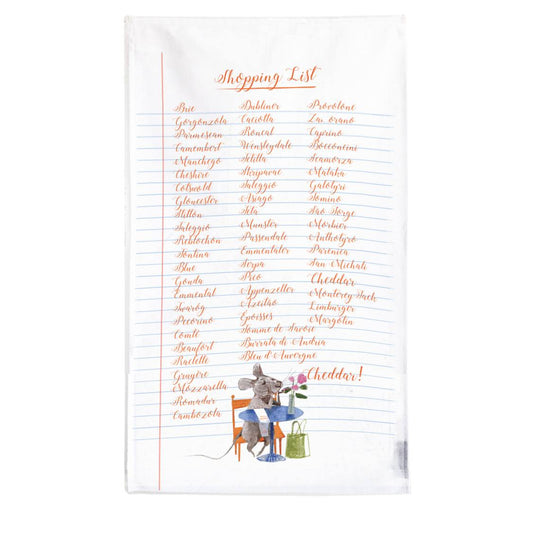 Shopping List
Brie
Gorgonzola
Parmesean
Camembert
Manchego
Cheshire
Cotswold
Gloucester
Stilton
Taleggio
Reblochon
Fontina
Blue
Gouda
Emmental
Pecorino
Comté
Beaufort
Raclette
Gruyère
Mozzarella
Romadur
Cambozola
Dubliner
Caciotta
Roncal
Wensleydale
Tetilla
Skripavac
Taleggio
Asiago
Feta
Munster
Passendale
Emmentaler
Serpa
Pico
Appenzeller
Azeitão
Époisses
Tomme de Savoie
Burrata di Andria
Bleu d'Auvergne
Provolone
Caprino
Bocconcini
Scamorza
Galotyri
Sao Jorge
Morbier
Anthotyro
Parenica
San Michali
Cheddar
Monterey Jack
Limburger
Margotin
Cheddar!